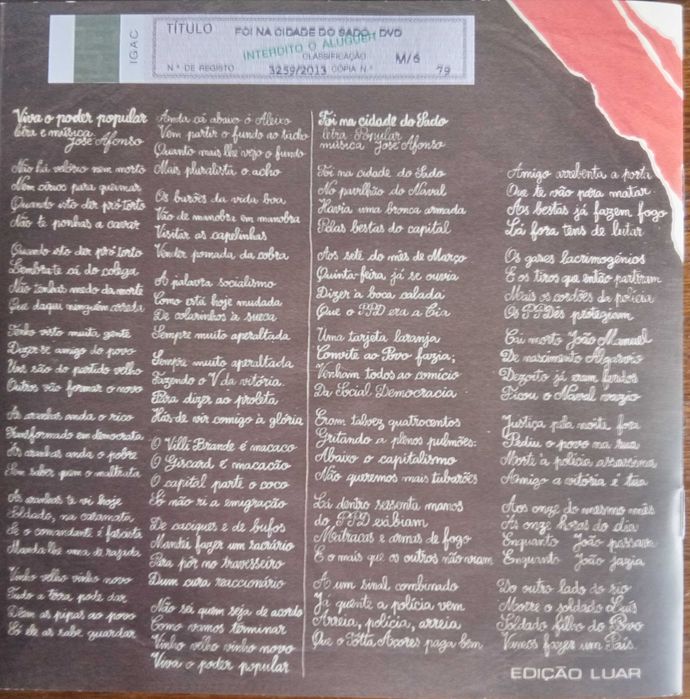 IGAC
TÍTULO FOI NA CIDADE DO SADO - DVD
INTERDITO O ALUGUER
CLASSIFICAÇÃO M/6
N.º DE REGISTO 3259/2013 CÓPIA N.º 79
Viva o poder popular
Letra e música
José Afonso
Não há velório nem morto
Nem círios para queimar
Quando isto der pró torto
Não te ponhas a cavar
Quando isto der pró torto
Lembra-te cá do colega
Não tenhas medo da morte
Que daqui ninguém arreda
Tenho visto muita gente
Dizer-se amigo do povo
Uns são do partido velho
Outros vão formar o novo
Às aranhas anda o rico
Transformado em democrata
Às aranhas anda o pobre
Sem saber quem o maltrata
Às aranhas te vi hoje
Soldado, na casamata
Se o comandante é fascista
Manda-lhe uma de rajada
Vinho velho vinho novo
Tudo a terra pode dar
Dêem as pipas ao povo
Só ele as sabe guardar
Anda cá abaixo ó Aleixo
Vem partir o fundo ao tacho
Quanto mais lhe vejo o fundo
Mais pluralista o acho
Os barões da vida boa
Vão de manobra em manobra
Visitar as capelinhas
Vender pomada da cobra
A palavra socialismo
Como está hoje mudada
De colarinhos à sueca
Sempre muito aperaltada
Sempre muito aperaltada
Fazendo o V da vitória
Para dizer ao proleta
Hás-de vir comigo à glória
O Villi Brande é macaco
O Giscard é macacão
O capital parte o coco
Só não ri a emigração
De caciques e de bufos
Mandei fazer um sacrário
Para pôr no travesseiro
Dum cura reaccionário
Não sei quem seja de acordo
Como vamos terminar
Vinho velho vinho novo
Viva o poder popular
Foi na cidade do Sado
letra Popular
música José Afonso
Foi na cidade do Sado
No pavilhão do Naval
Havia uma bronca armada
Pelas bestas do capital
Aos sete do mês de Março
Quinta-feira, já se ouvia
Dizer à boca calada
Que o PPD era a Cia
Uma tarjeta laranja
Convite ao Povo fazia;
Venham todos ao comício
Da Social Democracia
Eram talvez quatrocentos
Gritando a plenos pulmões:
Abaixo o capitalismo
Não queremos mais tubarões
Lá dentro sessenta manos
do PPD exibiam
Matracas e armas de fogo
E o mais que os outros não viram
A um sinal combinado
Já quente a polícia vem
Arreia, polícia, arreia
Que o Totta Açores paga bem
Amigo arrebenta a porta
Que te vão para matar
As bestas já fazem fogo
Lá fora tens de lutar
Os gases lacrimogénios
E os tiros que então partiram
Mais os cordões da polícia
Os PPDês protegiam
Cai morto João Manuel
De nascimento Algarvio
Dezoito já eram feridos
Ficou o Naval vazio
Justiça pela noite fora
Pediu o povo na rua
Morte à polícia assassina
Amigo a vitória é tua
Aos onze do mesmo mês
Às onze horas do dia
Enquanto João passava
Enquanto João jazia
Do outro lado do rio
Morre o soldado Luís
Soldado filho do Povo
Vamos fazer um País.
EDIÇÃO LUAR